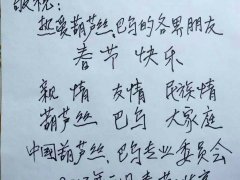 敬祝：
热爱葫芦丝巴乌的各界朋友
春节快乐
亲情 友情 民族情
葫芦丝 巴乌 大家庭
中国葫芦丝、巴乌专业委员会